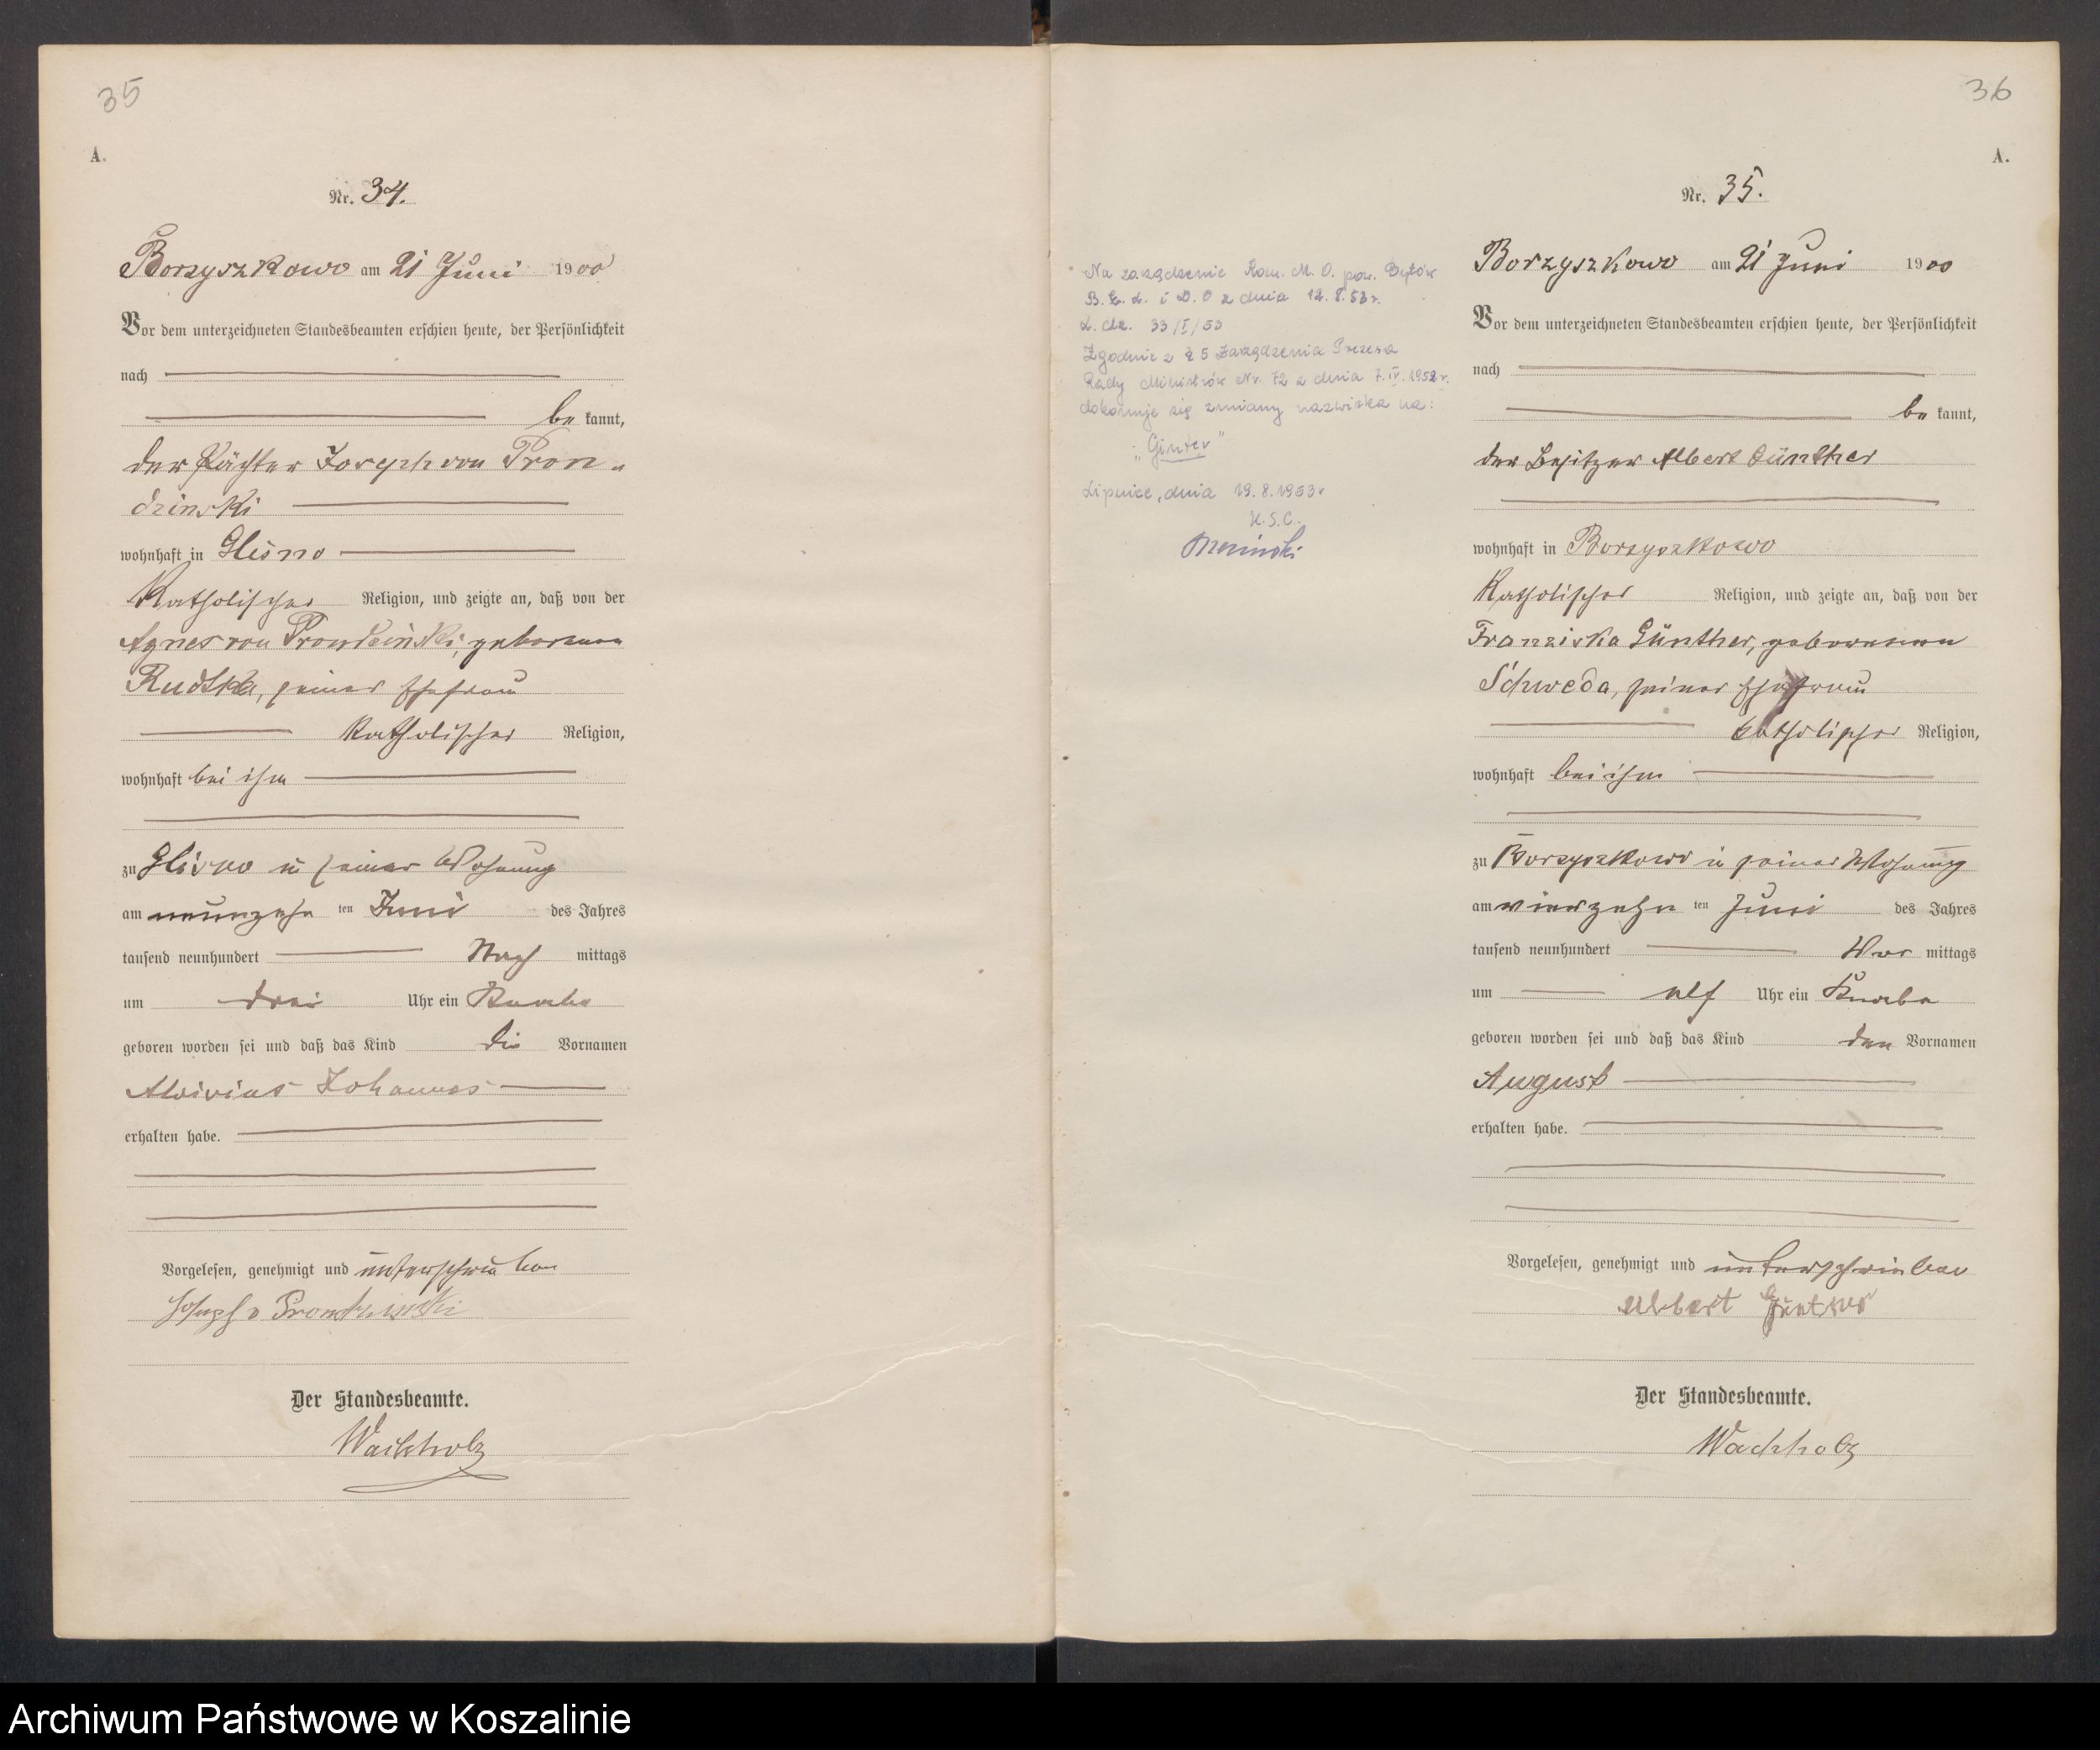 35
A.
Nr. 34.
Borzyszkowo am 21 Juni 1900
Vor dem unterzeichneten Standesbeamten erschien heute, der Persönlichkeit
nach
be kannt,
der Pächter Joseph von Pron-
dzinski
wohnhaft in Glisno
Katholischer Religion, und zeigte an, daß von der
Agnes von Prondzinski, geborenen
Rudtka, seiner Ehefrau
katholischer Religion,
wohnhaft bei ihm
zu Glisno in seiner Wohnung
am neunzehn ten Juni des Jahres
tausend neunhundert Nach mittags
um drei Uhr ein Knabe
geboren worden sei und daß das Kind die Vornamen
Aloisius Johannes
erhalten habe.
Vorgelesen, genehmigt und unterschrieben
Joseph v Prondzinski
Der Standesbeamte.
Wachholz
36
A.
Nr. 35.
Na zarządzenie Kom. M. O. pow. Bytów
B. E. L. i D. O z dnia 12.8.53 r.
L. dz. 33/I/53
Zgodnie z § 5 Zarządzenia Prezesa
Rady Ministrów Nr. 72 z dnia 7.IV.1952 r.
dokonuje się zmiany nazwiska na:
"Ginter"
Lipnice, dnia 19.8.1953 r
U.S.C.
Borzyszkowo am 21 Juni 1900
Vor dem unterzeichneten Standesbeamten erschien heute, der Persönlichkeit
nach
be kannt,
der Besitzer Albert Günther
wohnhaft in Borzyszkowo
Katholischer Religion, und zeigte an, daß von der
Franziska Günther, geborenen
Schweda, seiner Ehefrau
katholischer Religion,
wohnhaft bei ihm
zu Borzyszkowo in seiner Wohnung
am vierzehn ten Juni des Jahres
tausend neunhundert Vor mittags
um elf Uhr ein Knabe
geboren worden sei und daß das Kind den Vornamen
August
erhalten habe.
Vorgelesen, genehmigt und unterschrieben
Albert
Der Standesbeamte.
Wachholz
Archiwum Państwowe w Koszalinie